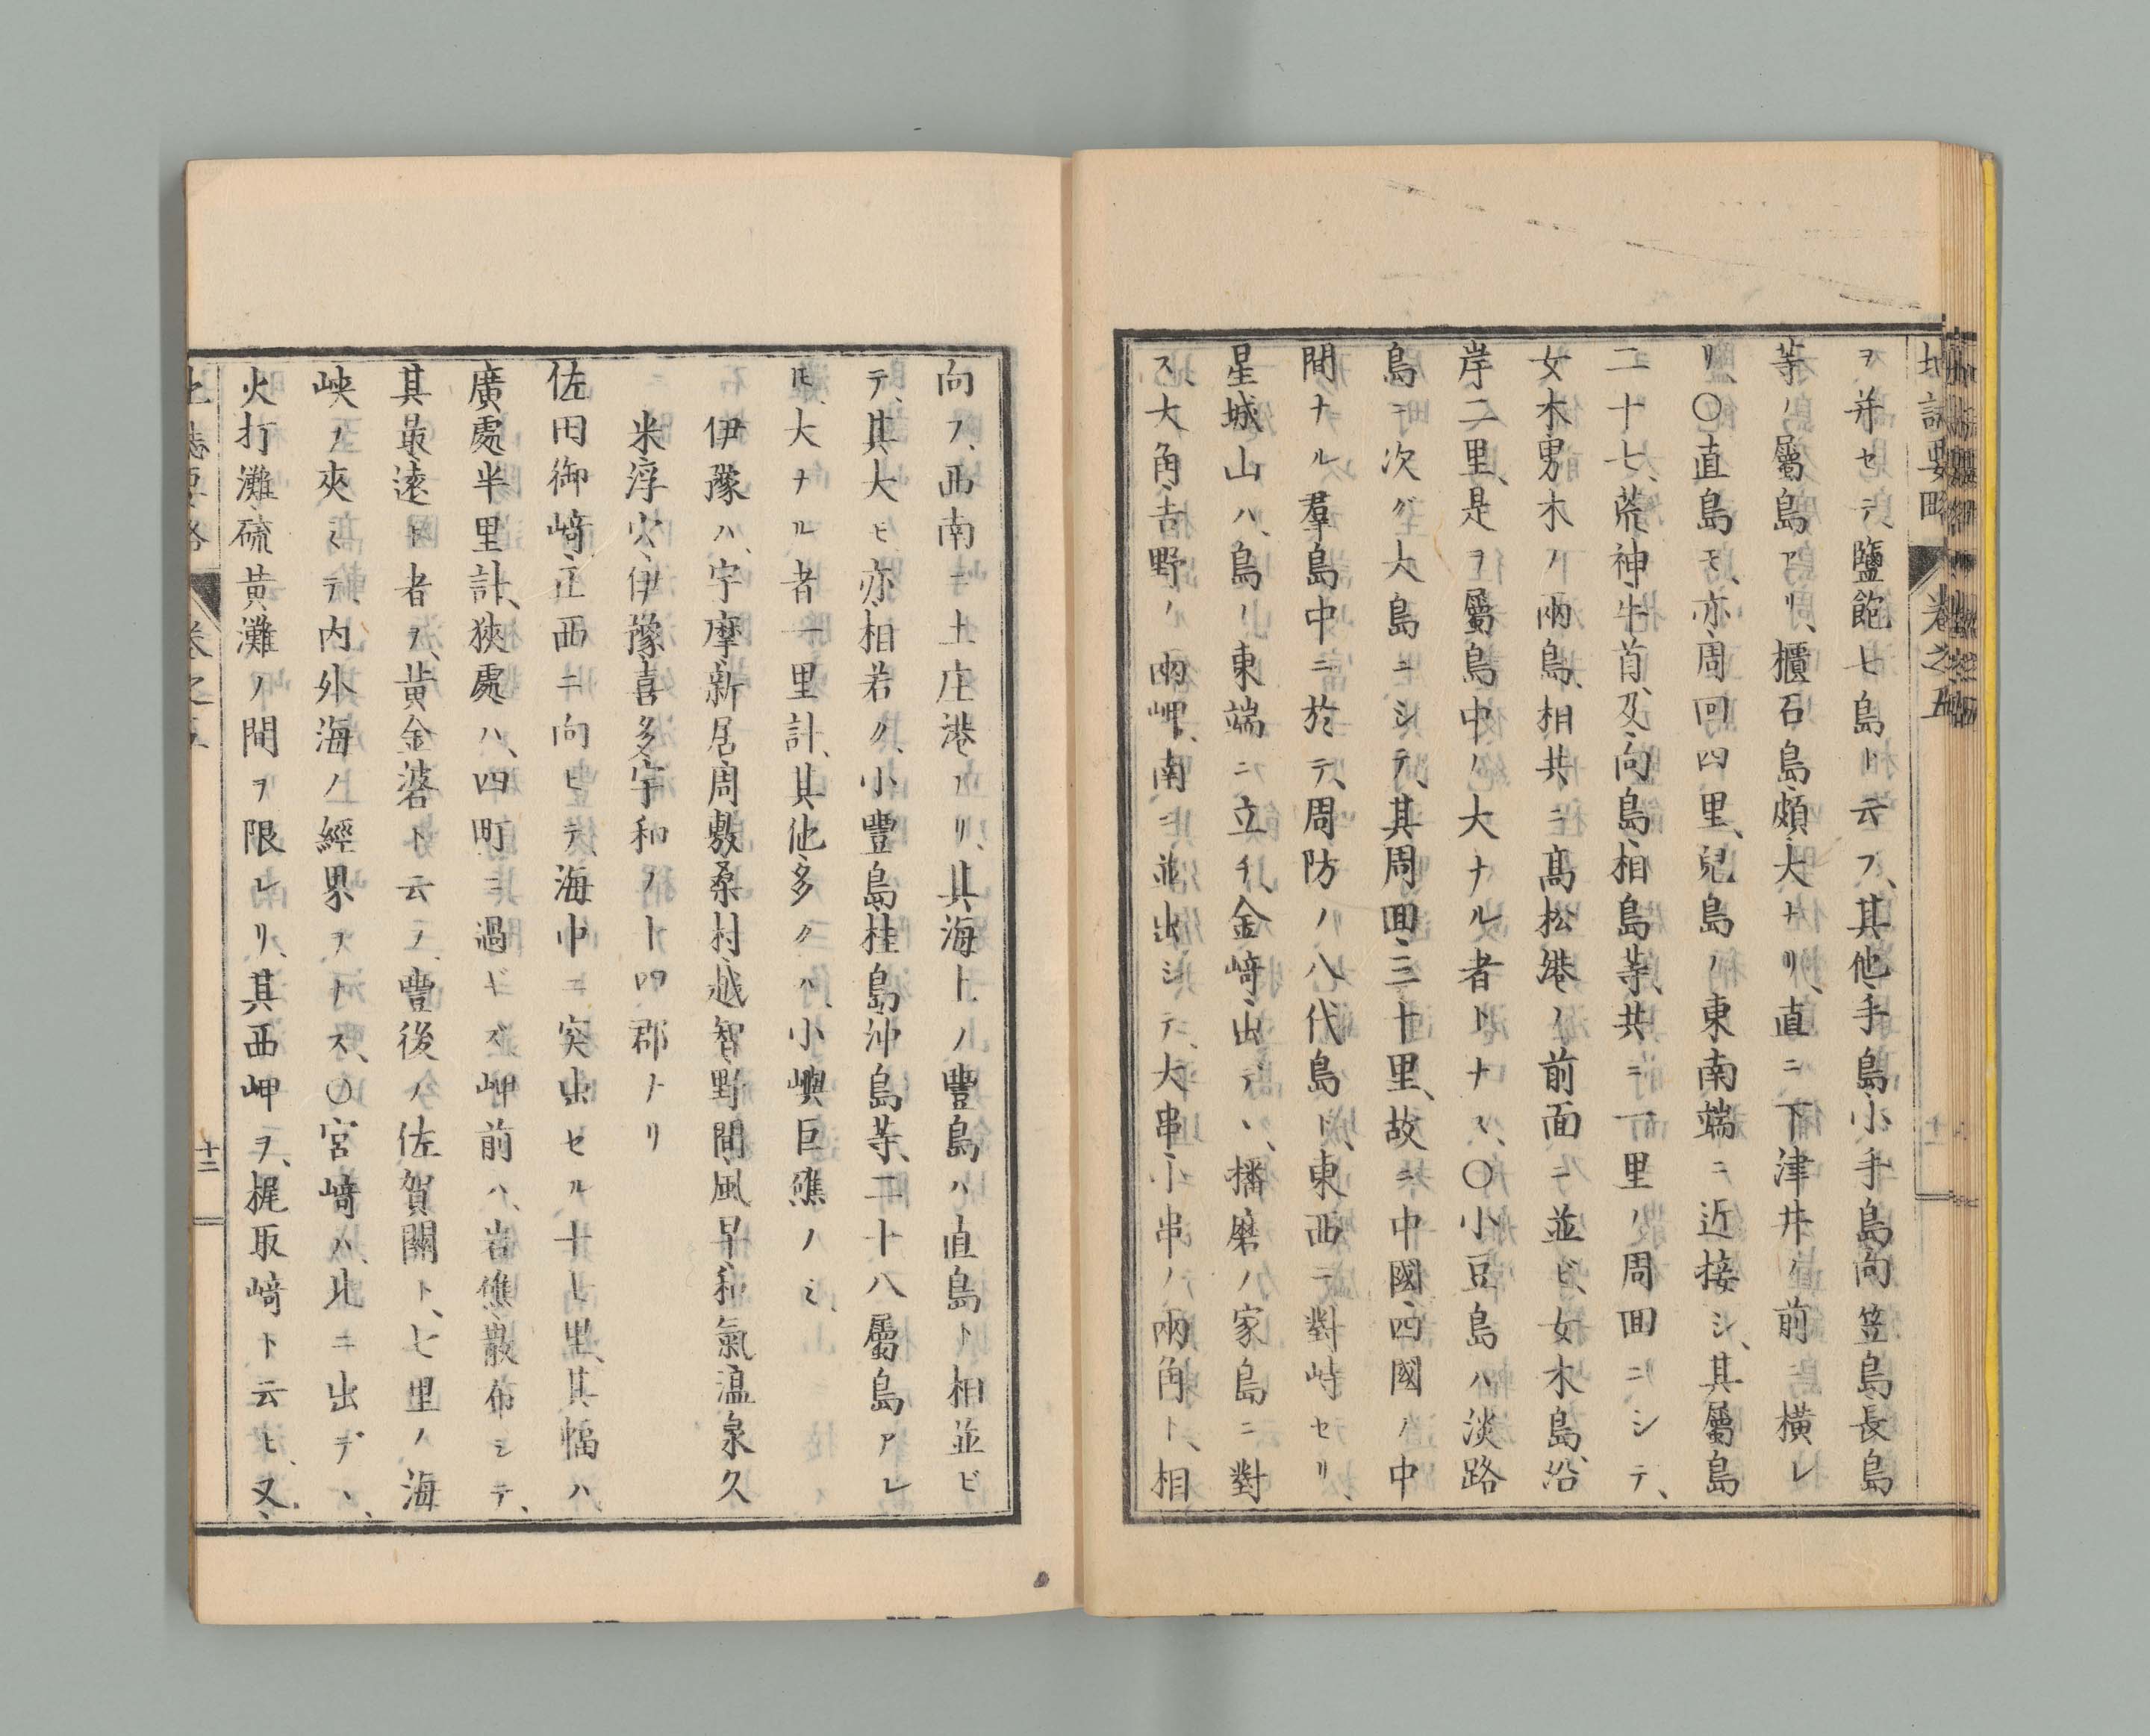 地誌要略 卷之五
ヲ并セテ、鹽飽七島ト云フ、其他手島小手島向笠島長島
等ノ屬島アリ、櫃石島頗大ナリ、直ニ下津井ノ前ニ横レ
リ、○直島モ、亦周回四里、兒島ノ東南端ニ近接シ、其屬島
二十七、荒神牛首、及向島相島等、共ニ一里ノ周回ニシテ、
女木男木ノ兩島、相共ニ高松港ノ前面ニ並ビ、女木島、沿
岸二里、是ヲ屬島中ノ大ナル者トナス、○小豆島ハ淡路
島ニ次グ大島ニシテ、其周回三十里、故ニ中國四國ノ中
間ナル群島中ニ於テ、周防ノ八代島ト、東西ニ對峙セリ、
星城山ハ、島ノ東端ニ立チ、金﨑出デヽ、播磨ノ家島ニ對
ス、大角吉野ノ兩岬、南ニ並出シテ、大串小串ノ兩角ト、相
向フ、西南ニ土庄港アリ、其海上ノ豐島ハ直島ト相並ビ
テ、其大ヒ亦相若ク、小豐島桂島沖島等、二十八屬島アレ
𪜈、大ナル者一里計、其他多クハ、小嶼巨礁ノミ、
伊豫ハ、宇摩新居周敷桑村越智野間風早和氣温泉久
米浮穴伊豫喜多宇和ノ十四郡ナリ
佐田御﨑、正西ニ向ヒテ、海中ニ突出セル十七里、其幅ハ、
廣處半里計、狹處ハ、四町ニ過ギズ、岬前ハ、岩礁散布シテ、
其最遠ト者ヲ、黄金碆ト云フ、豐後ノ佐賀關ト、七里ノ海
峽ノ夾ミテ、内外海ノ經界ヲナス、○宮﨑ハ、北ニ出デヽ、
火打灘硫黄灘ノ間ヲ限レリ、其西岬ヲ、梶取﨑ト云ヒ、又、
卷之五
十二